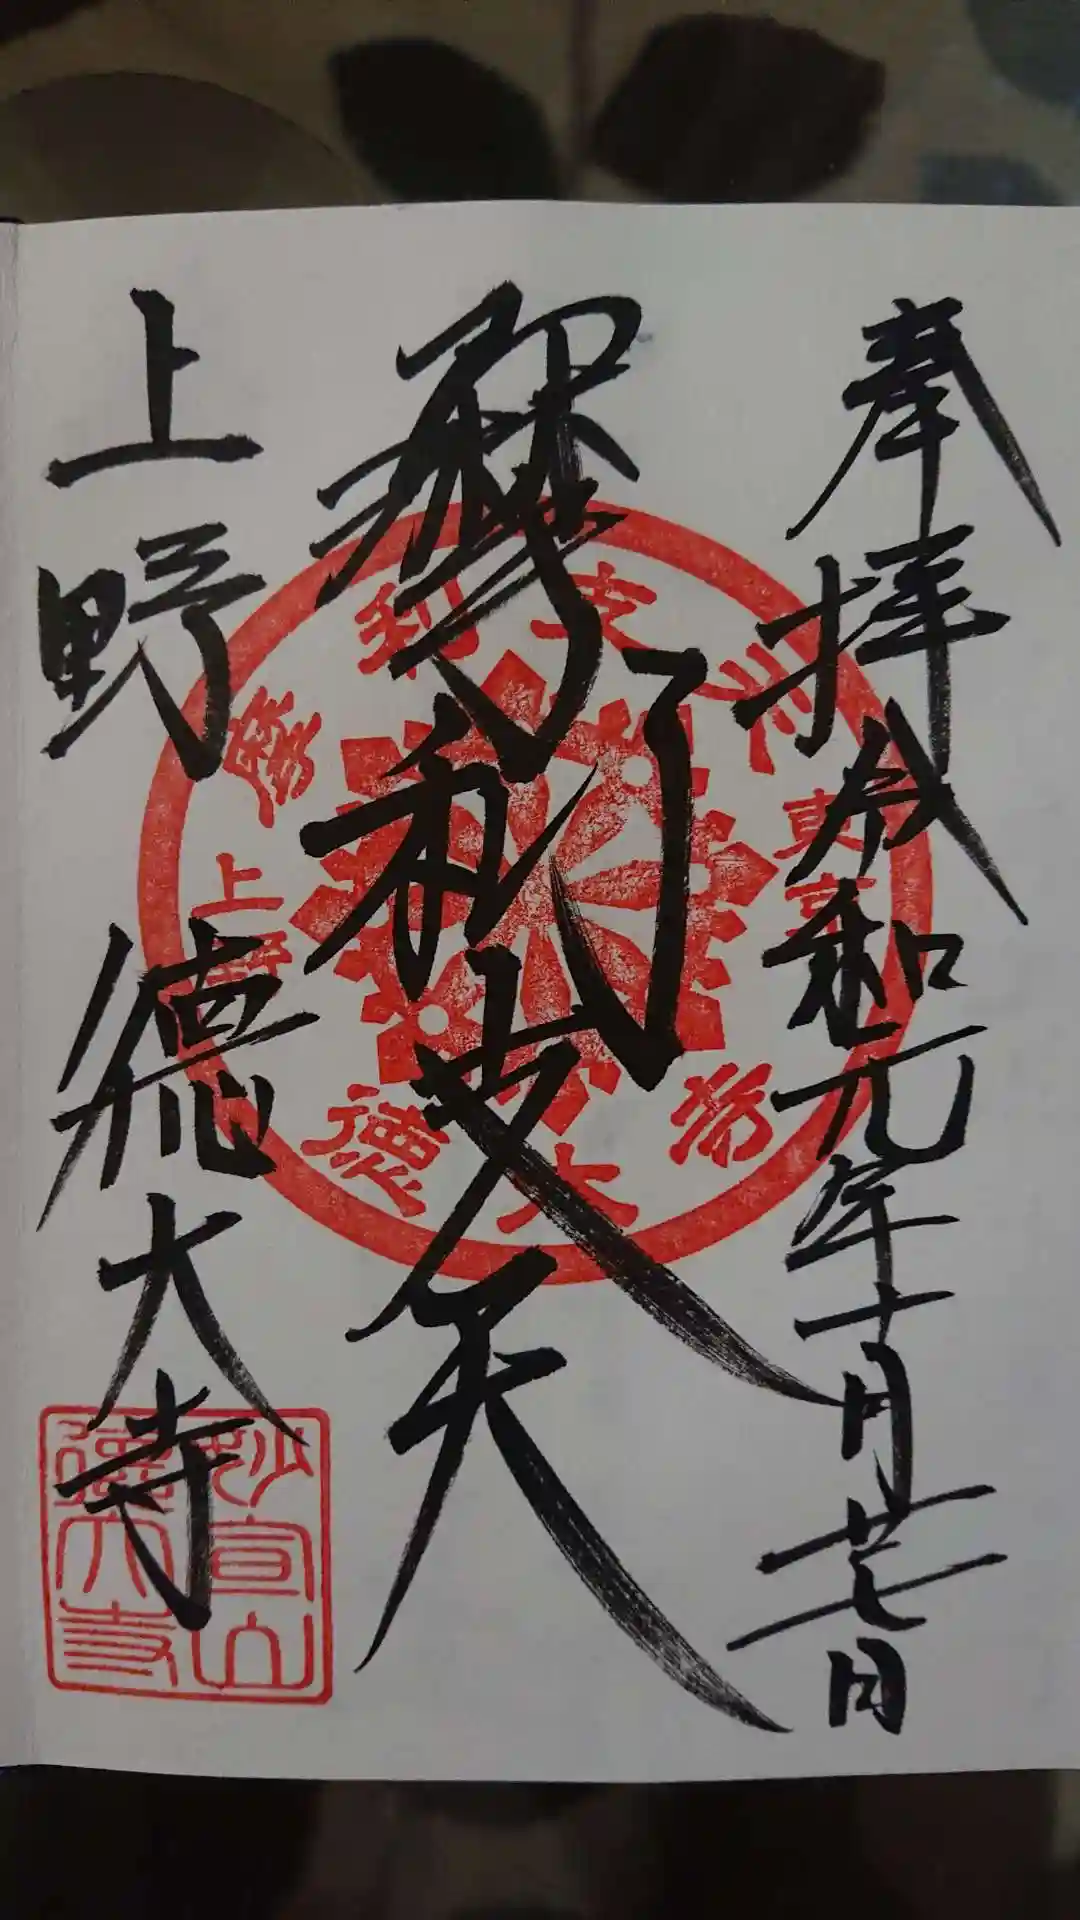 奉拝 令和元年十月廿七日
摩利支天
上野 徳大寺
摩利支天
東京
上野
徳大寺
妙宣山
徳大寺